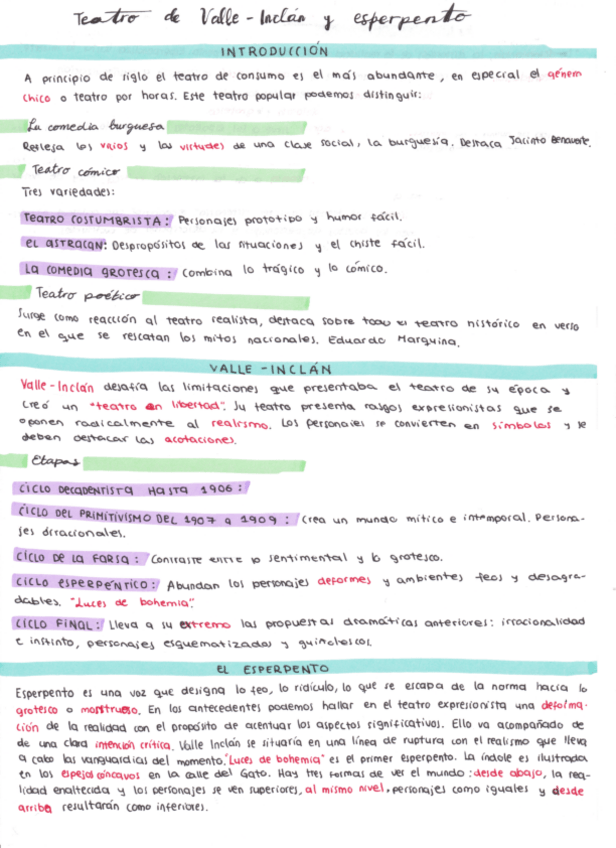 Teatro de Valle-Inclán y esperpento
INTRODUCCIÓN
A principio de siglo el teatro de consumo es el más abundante, en especial el género
chico o teatro por horas. Este teatro popular podemos distinguir:
La comedia burguesa
Refleja los vicios y las virtudes de una clase social, la burguesía. Destaca Jacinto Benavente.
Teatro cómico
Tres variedades:
TEATRO COSTUMBRISTA: Personajes prototipo y humor fácil.
EL ASTRACÁN: Despropósitos de las situaciones y el chiste fácil.
LA COMEDIA GROTESCA: Combina lo trágico y lo cómico.
Teatro poético
Surge como reacción al teatro realista, destaca sobre todo el teatro histórico en verso
en el que se rescatan los mitos nacionales. Eduardo Marquina.
VALLE-INCLÁN
Valle-Inclán desafía las limitaciones que presentaba el teatro de su época y
creó un "teatro en libertad". Su teatro presenta rasgos expresionistas que se
oponen radicalmente al realismo. Los personajes se convierten en símbolos y se
deben destacar las acotaciones.
Etapas
CICLO DECADENTISTA HASTA 1906:
CICLO DEL PRIMITIVISMO DEL 1907 a 1909: Crea un mundo mítico e intemporal. Persona-
jes irracionales.
CICLO DE LA FARSA: Contraste entre lo sentimental y lo grotesco.
CICLO ESPERPÉNTICO: Abundan los personajes deformes y ambientes feos y desagra-
dables. "Luces de bohemia".
CICLO FINAL: Lleva a su extremo las propuestas dramáticas anteriores: irracionalidad
e instinto, personajes esquematizados y guiñolescos.
EL ESPERPENTO
Esperpento es una voz que designa lo feo, lo ridículo, lo que se escapa de la norma hacia lo
grotesco o monstruoso. En los antecedentes podemos hallar en el teatro expresionista una deforma-
ción de la realidad con el propósito de acentuar los aspectos significativos. Ello va acompañado de
de una clara intención crítica. Valle Inclán se situaría en una línea de ruptura con el realismo que lleva
a cabo las vanguardias del momento. "Luces de bohemia" es el primer esperpento. La índole es ilustrada
en los espejos cóncavos en la calle del Gato. Hay tres formas de ver el mundo: desde abajo, la rea-
lidad enaltecida y los personajes se ven superiores, al mismo nivel, personajes como iguales y desde
arriba resultarán como inferiores.